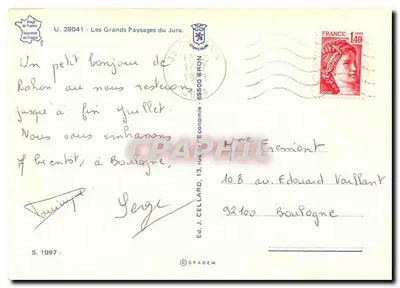 U. 28041 - Les Grands Paysages du Jura.
Un petit bonjour de
Rahon où nous resterons
jusqu'à fin Juillet.
Nous vous embrassons
A bientôt, à Boulogne,
Serge
S. 1097
Ed. J. CELLARD, 13, rue de l'Economie - 69500 BRON
FRANCE
1,40
Fremont
108 av. Edouard Vaillant
92100 Boulogne
© SPADEM
CPARAMA